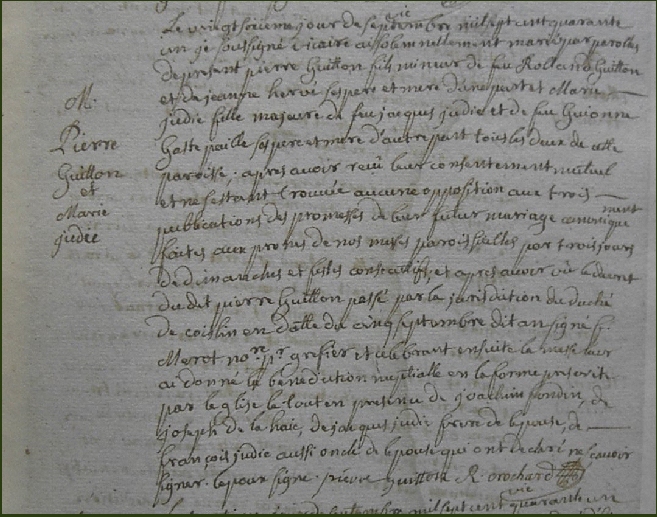 M.
Pierre
Guillon
et
Marie
judic
Le vingt sixieme jour de septembre mil sept cent quarante
un je soussigné vicaire ai solemnellement marié par paroles
de present pierre Guillon fils mineur de feu Rolland Guillon
et de jeanne hervé ses pere et mere d'une part et Marie
judic fille majeure de feu jacques judic et de feu Guionne
Gatte paille ses pere et mere d'autre part tous les deux de cette
paroisse. apres avoir reçu leur consentement mutuel
et ne s'estant trouvée aucune opposition aux trois
publications des promesses de leur futur mariage canoniquement
faites aux prones de nos messes paroissialles par trois jours
de dimanches et festes consecutifs, et apres avoir vû le decret
du dit pierre Guillon passé par la jurisdiction du duché
de coislin en datte du cinq septembre dit an signé
Merot no.re grefier et celebrant ensuite la messe leur
ai donné la benediction nuptialle en la forme prescrite
par l'eglise le tout en presence de joachim hondin, de
joseph de la haie, de jacques judic frere de l'epouse, de
françois judic aussi oncle de l'epouse qui ont declaré ne scavoir
signer. l'epoux signe. pierre Guillon R. orochard
septembre mil sept cent quarante un